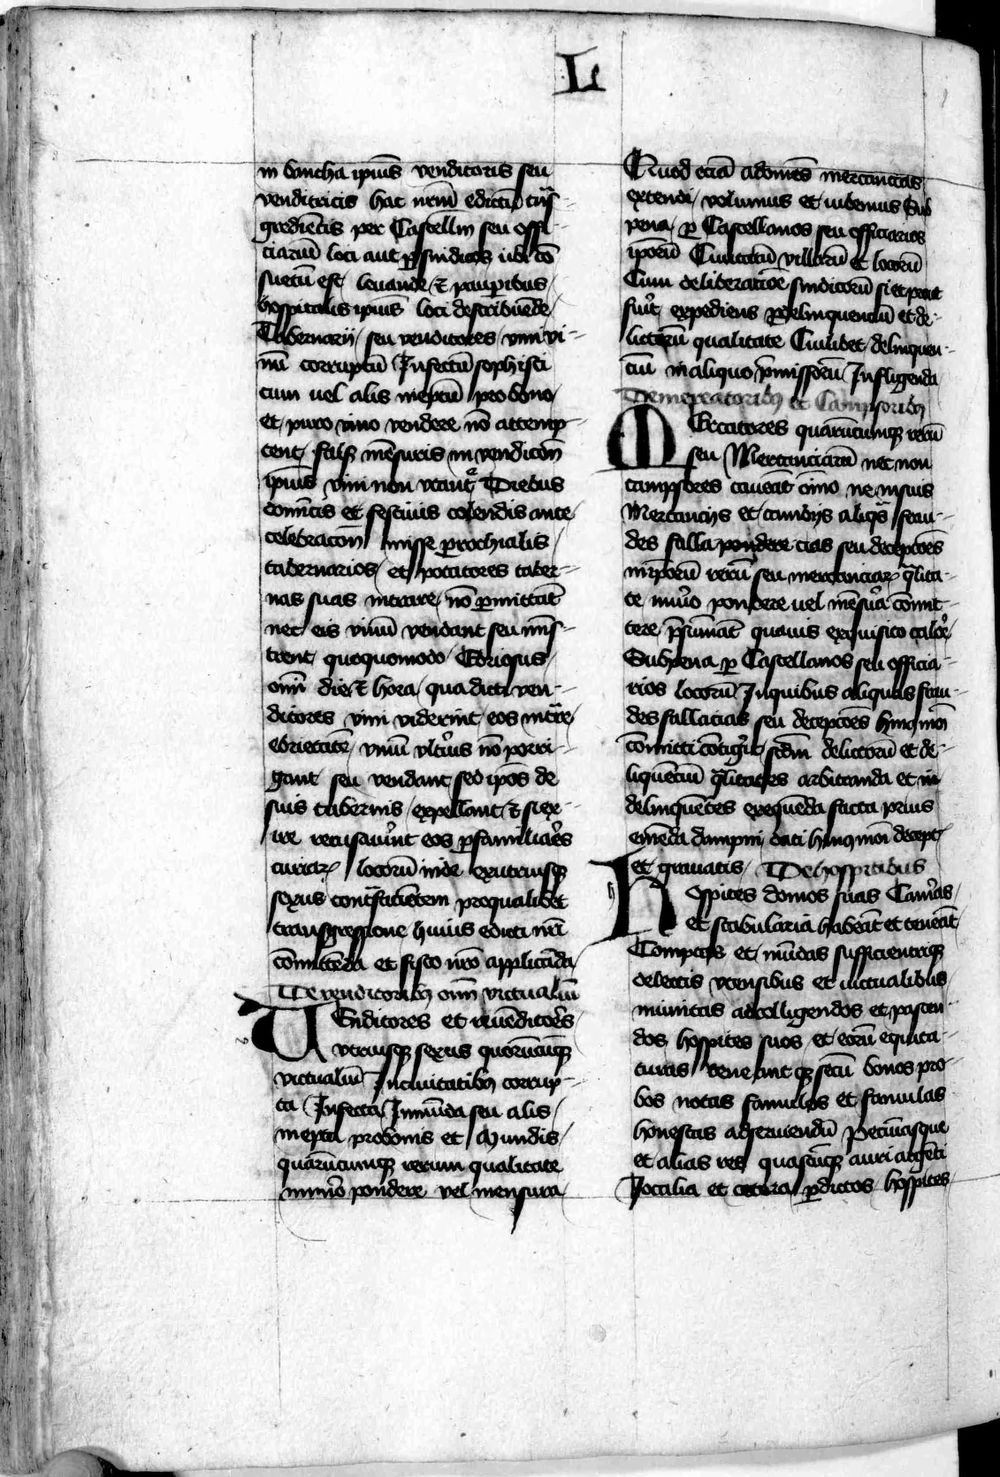 L
in bancha ipius venditoris seu
venditricis hac nrm̄ edictū tns̄-
gredientis per Castellm̄ seu offi-
ciariū loci aut p sindicos ubi cō
suetū est levande et pauperibus
hospitalis ipius loci describuēde
Tabernarii seu venditores vini vi-
nū corruptū Infectū sophisti
cum vel alis ineptū pro bono
et puro vino vendere nō attemp-
tent falsis mēsuris in vendicōn
ipius vini non utant Diebus
dominicis et festivis colendis ante
celebracōn misse prochialis
tabernarios et potatores taber-
nas suas intrare nō pmittāt
nec eis vinū vendant seu mis-
trent quoquomodo Ebriosus
omi die et hora qua dicti ven-
ditores vini viderint eos intrare
ebrietatē vinū ulterius nō porri-
gant seu vendant sed ipos de
suis tabernis expellant et si ex-
ire recusaverint eos p familiares
curiar locorū inde exutriusq
sexus contrafacientem pro qualibet
transgressione huius edicti nri
cōmittēda et fisco nro applicāda
De venditoribus omī victualiū
Venditores et revēditores
utriusq sexus quorūcūq
victualiū In civitatibus corrup-
ta Infecta Inmūda seu alis
inepta pro bonis et mundis
quarūcumq rerum qualitate
numero pondere vel mensura
Quod eciā ad omēs mercancias
extendi volumus et iubemus sub
pena p Castellanos seu officiarios
iporū Civitatū villarū et locorū
Cum deliberatiōe sindicorū si et prout
fuerit expediens p delinquenciū et de-
lictorū qualitate Cuilibet delinquen-
ciū in aliquo premissorū Infligenda
De mercatoribus et Campsoribus
Mercatores quarūcumq rerū
seu Mercanciarū nec non
campsores caveāt oīno ne in suis
Mercanciis et cambiis aliqs frau-
des falla pondere cias seu decepcōes
in iporū rerū seu mercanciar qlita-
te nuo pondere vel mēsura cōmit-
tere psumāt quavis exquisito calore
Sub pena p Castellanos seu officia-
rios locorū In quibus aliquas frau-
des fallacias seu decepcōes hmoi
cōmitti cōtigerit scdm delictorū et de-
liquēciū qlitates arbitranda et in
delinquētes exequēda facta prius
emēda dampni dati hmoi decept
et gravatis De hospitibus
Hospites domos suas Cameras
et stabularia habeāt et teneāt
Compatis et mūdas sufficienterq
delectis utensibus et victualibus
munitas ad colligendos et pascen-
dos hospites suos et eorū equita-
turas teneant q secū bonos pro-
bos notas famulos et famulas
honestas ad serviendū Pecuniasque
et alias res quascūq auri argēti
Jocalia et cetera p dictos hospites